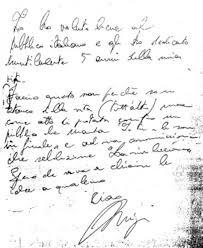 Io ho voluto bene al
pubblico italiano e gli ho dedicato
inutilmente 5 anni della mia
vita.
Faccio questo non perché sono
stanco della vita (tutt'altro) ma
come atto di protesta contro un
pubblico che manda Io tu e le rose
in finale e ad una commissione
che seleziona La rivoluzione.
Spero che serva a chiarire le
idee a qualcuno.
Ciao
Luigi